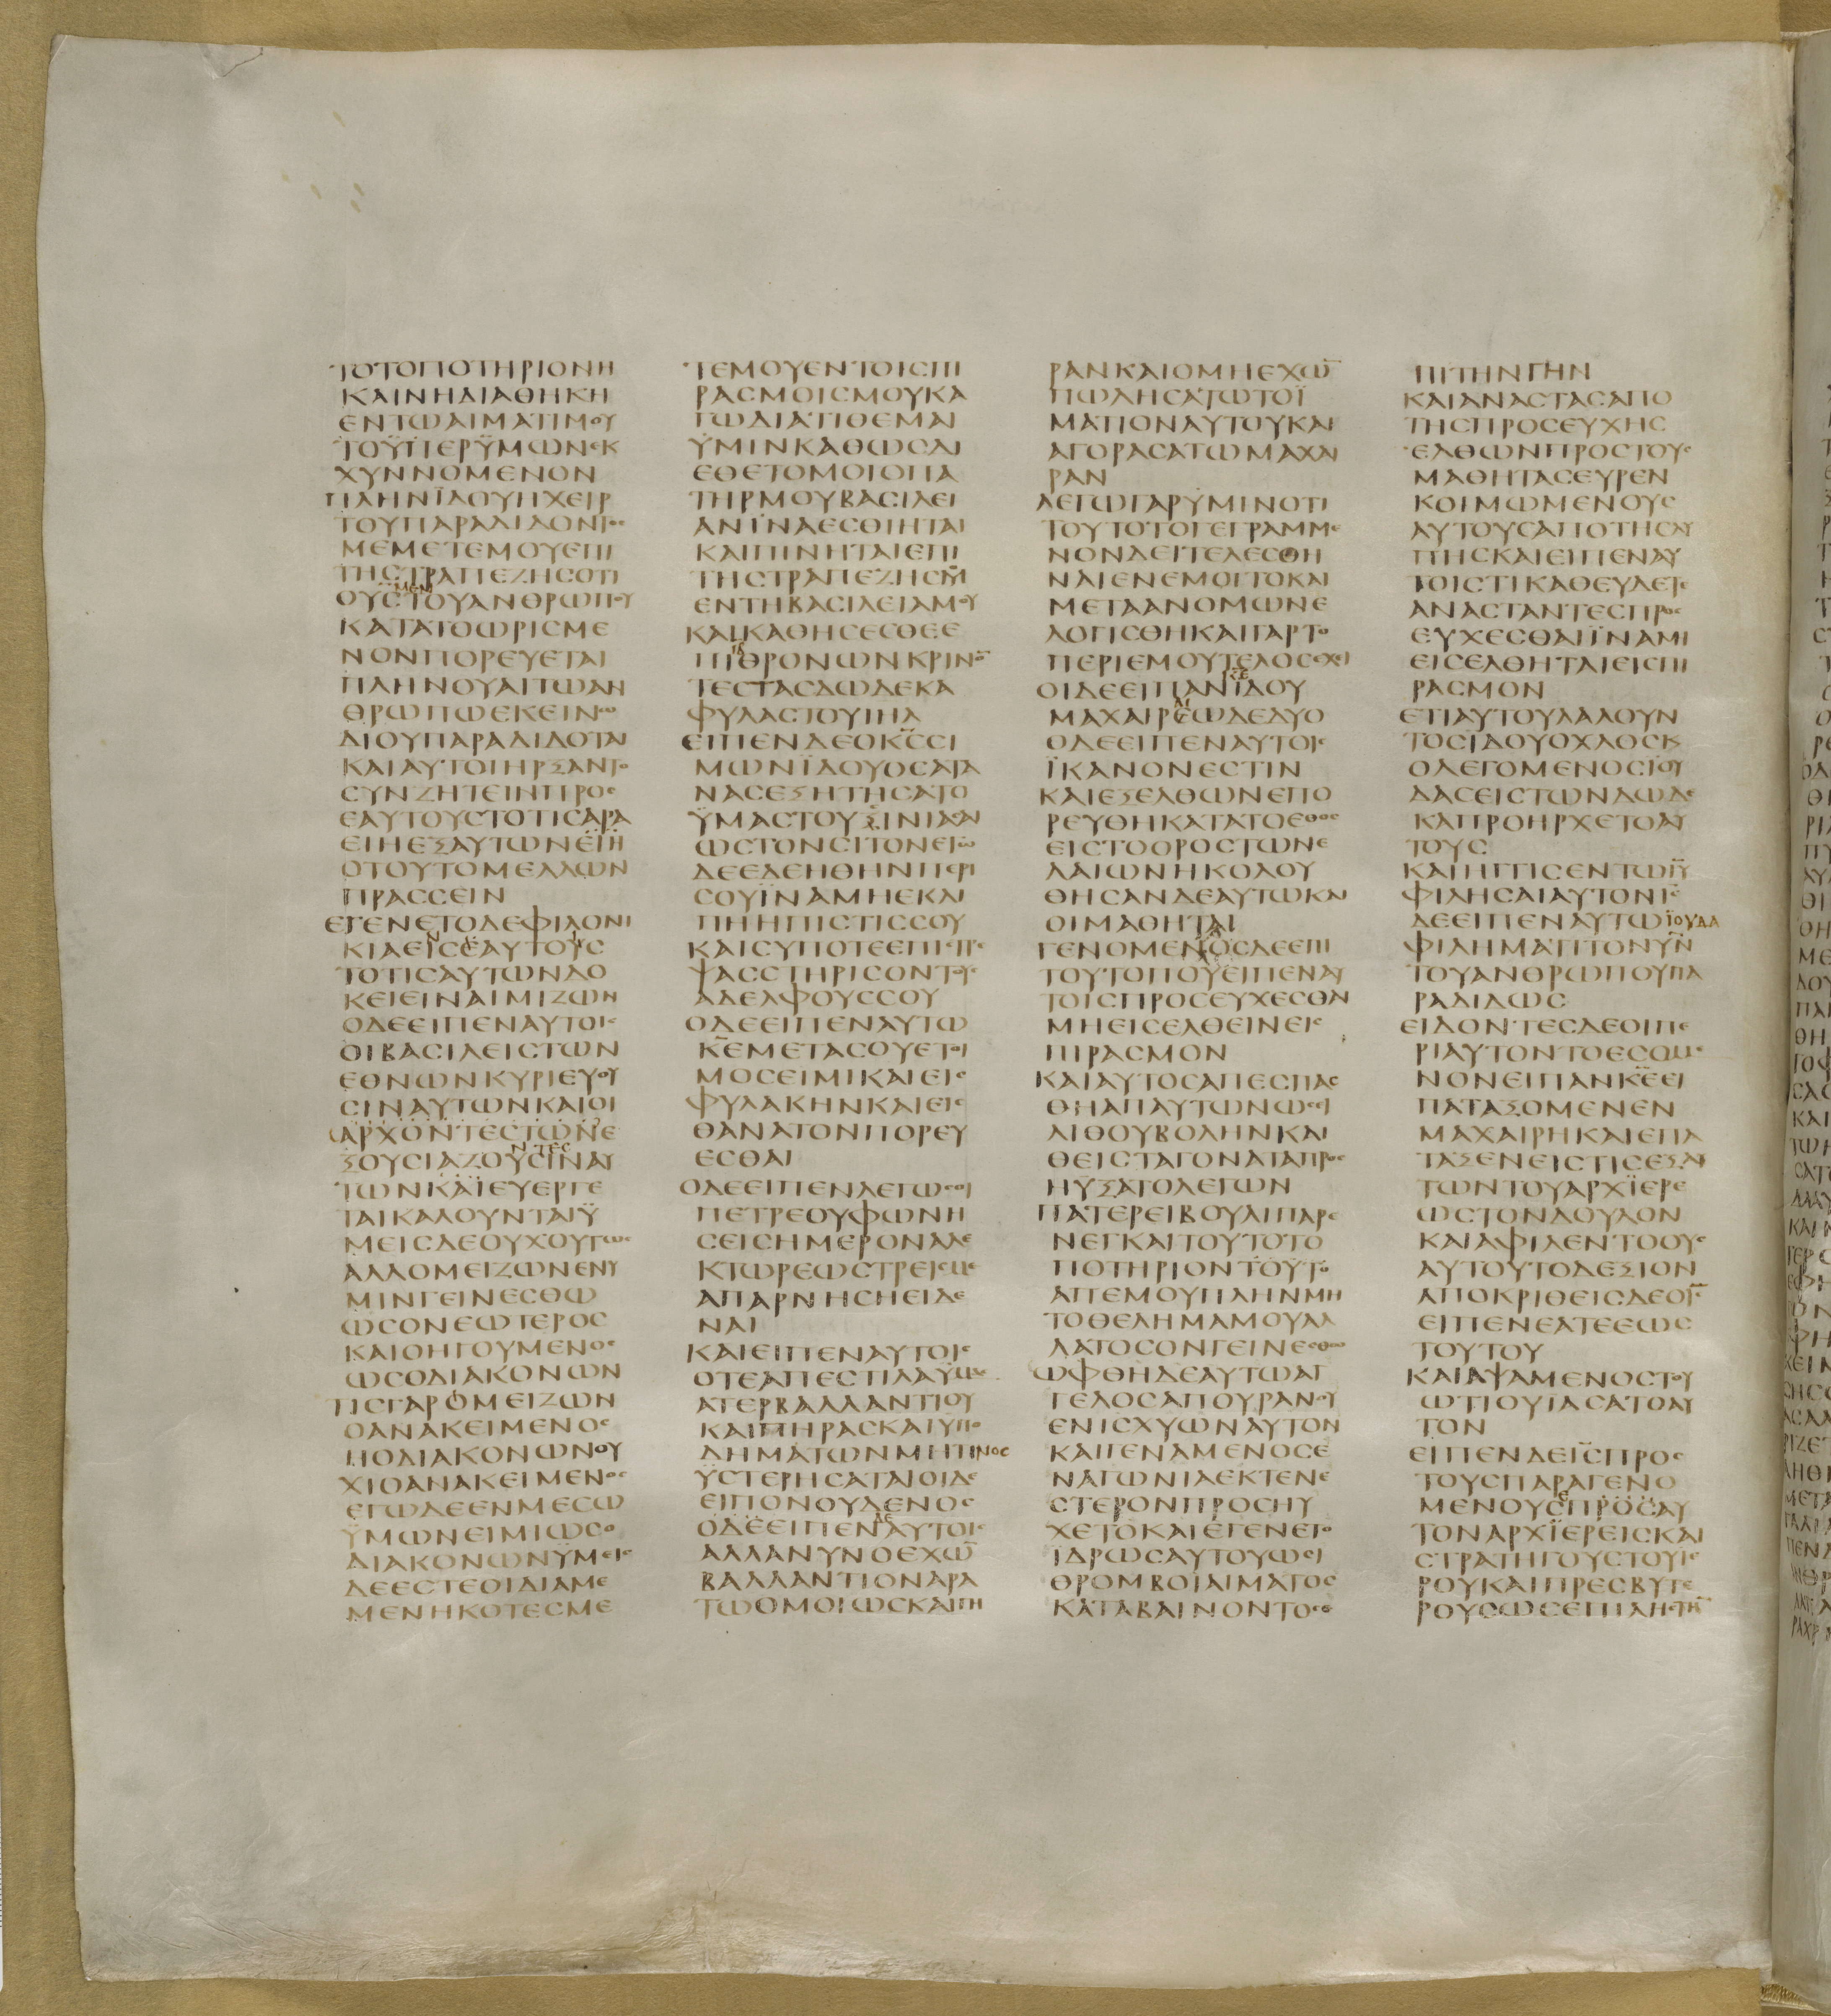 ΤΟΤΟΠΟΤΗΡΙΟΝΗ
ΚΑΙΝΗΔΙΑΘΗΚΗ
ΕΝΤΩΑΙΜΑΤΙΜΟΥ
ΤΟΫΠΕΡΫΜΩΝΕΚ
ΧΥΝΝΟΜΕΝΟΝ
ΠΛΗΝΪΔΟΥΗΧΕΙΡ
ΤΟΥΠΑΡΑΔΙΔΟΝΤΟϹ
ΜΕΜΕΤΕΜΟΥΕΠΙ
ΤΗϹΤΡΑΠΕΖΗϹΟΤΙ
ΜΕΝ
ΟΥϹΤΟΥΑΝΘΡΩΠΟΥ
ΚΑΤΑΤΟΩΡΙϹΜΕ
ΝΟΝΠΟΡΕΥΕΤΑΙ
ΠΛΗΝΟΥΑΙΤΩΑΝ
ΘΡΩΠΩΕΚΕΙΝΩ
ΔΙΟΥΠΑΡΑΔΙΔΟΤΑΙ
ΚΑΙΑΥΤΟΙΗΡΞΑΝΤΟ
ϹΥΝΖΗΤΕΙΝΠΡΟϹ
ΕΑΥΤΟΥϹΤΟΤΙϹΑΡΑ
ΕΙΗΕΞΑΥΤΩΝΕΪΗ
ΟΤΟΥΤΟΜΕΛΛΩΝ
ΠΡΑϹϹΕΙΝ
ΕΓΕΝΕΤΟΔΕΦΙΛΟΝΙ
ΚΙΑΕΙϹΕΑΥΤΟΥϹ
ΤΟΤΙϹΑΥΤΩΝΔΟ
ΚΕΙΕΙΝΑΙΜΙΖΩΝ
ΟΔΕΕΙΠΕΝΑΥΤΟΙϹ
ΟΙΒΑϹΙΛΕΙϹΤΩΝ
ΕΘΝΩΝΚΥΡΙΕΥΟΥ
ϹΙΝΑΥΤΩΝΚΑΙΟΙ
ΑΡΧΟΝΤΕϹΤΩΝΕ
ΝΤΕϹ
ΞΟΥϹΙΑΖΟΥϹΙΝΑΥ
ΤΩΝΚΑΙΕΥΕΡΓΕ
ΤΑΙΚΑΛΟΥΝΤΑΙΫ
ΜΕΙϹΔΕΟΥΧΟΥΤΩϹ
ΑΛΛΟΜΕΙΖΩΝΕΝΫ
ΜΙΝΓΕΙΝΕϹΘΩ
ΩϹΟΝΕΩΤΕΡΟϹ
ΚΑΙΟΗΓΟΥΜΕΝΟϹ
ΩϹΟΔΙΑΚΟΝΩΝ
ΤΙϹΓΑΡΟΜΕΙΖΩΝ
ΟΑΝΑΚΕΙΜΕΝΟϹ
ΗΟΔΙΑΚΟΝΩΝΟΥ
ΧΙΟΑΝΑΚΕΙΜΕΝΟϹ
ΕΓΩΔΕΕΝΜΕϹΩ
ΫΜΩΝΕΙΜΙΩϹΟ
ΔΙΑΚΟΝΩΝΫΜΕΙϹ
ΔΕΕϹΤΕΟΙΔΙΑΜΕ
ΜΕΝΗΚΟΤΕϹΜΕ
ΤΕΜΟΥΕΝΤΟΙϹΠΙ
ΡΑϹΜΟΙϹΜΟΥΚΑ
ΓΩΔΙΑΤΙΘΕΜΑΙ
ΫΜΙΝΚΑΘΩϹΔΙ
ΕΘΕΤΟΜΟΙΟΠΑ
ΤΗΡΜΟΥΒΑϹΙΛΕΙ
ΑΝΪΝΑΕϹΘΙΗΤΑΙ
ΚΑΙΠΙΝΗΤΑΙΕΠΙ
ΤΗϹΤΡΑΠΕΖΗϹΜ
ΕΝΤΗΒΑϹΙΛΕΙΑΜΟΥ
ΚΑΙΚΑΘΗϹΕϹΘΕΕ
ΙΒ
ΠΙΘΡΟΝΩΝΚΡΙΝΟ̅
ΤΕϹΤΑϹΔΩΔΕΚΑ
ΦΥΛΑϹΤΟΥΙΗΛ
ΕΙΠΕΝΔΕΟΚϹ̅ϹΙ
ΜΩΝΪΔΟΥΟϹΑΤΑ
ΝΑϹΕΞΗΤΗϹΑΤΟ
ΫΜΑϹΤΟΥϹΙΝΙΑϹΑΙ
ΩϹΤΟΝϹΙΤΟΝΕΓΩ
ΔΕΕΔΕΗΘΗΝΠΕΡΙ
ϹΟΥΪΝΑΜΗΕΚΛΙ
ΠΗΗΠΙϹΤΙϹϹΟΥ
ΚΑΙϹΥΠΟΤΕΕΠΙϹΤΡΕ
ΨΑϹϹΤΗΡΙϹΟΝΤΟΥϹ
ΑΔΕΛΦΟΥϹϹΟΥ
ΟΔΕΕΙΠΕΝΑΥΤΩ
ΚΕ̅ΜΕΤΑϹΟΥΕΤΟΙ
ΜΟϹΕΙΜΙΚΑΙΕΙϹ
ΦΥΛΑΚΗΝΚΑΙΕΙϹ
ΘΑΝΑΤΟΝΠΟΡΕΥ
ΕϹΘΑΙ
ΟΔΕΕΙΠΕΝΛΕΓΩϹΟΙ
ΠΕΤΡΕΟΥΦΩΝΗ
ϹΕΙϹΗΜΕΡΟΝΑΛΕ
ΚΤΩΡΕΩϹΤΡΕΙϹΜΕ
ΑΠΑΡΝΗϹΗΕΙΔΕ
ΝΑΙ
ΚΑΙΕΙΠΕΝΑΥΤΟΙϹ
ΟΤΕΑΠΕϹΤΙΛΑΫΜΑϹ
ΑΤΕΡΒΑΛΛΑΝΤΙΟΥ
ΚΑΙΠΗΡΑϹΚΑΙΥΠΟ
ΔΗΜΑΤΩΝΜΗΤΙΝΟϹ
ΫϹΤΕΡΗϹΑΤΑΙΟΙΔΕ
ΕΙΠΟΝΟΥΔΕΝΟϹ
ΔΕ
ΟΔΕΕΙΠΕΝΑΥΤΟΙϹ
ΑΛΛΑΝΥΝΟΕΧΩ̅
ΒΑΛΛΑΝΤΙΟΝΑΡΑ
ΤΩΟΜΟΙΩϹΚΑΙΠΗ
ΡΑΝΚΑΙΟΜΗΕΧΩ̅
ΠΩΛΗϹΑΤΩΤΟΪ
ΜΑΤΙΟΝΑΥΤΟΥΚΑΙ
ΑΓΟΡΑϹΑΤΩΜΑΧΑΙ
ΡΑΝ
ΛΕΓΩΓΑΡΫΜΙΝΟΤΙ
ΤΟΥΤΟΤΟΓΕΓΡΑΜΜΕ
ΝΟΝΔΕΙΤΕΛΕϹΘΗ
ΝΑΙΕΝΕΜΟΙΤΟΚΑΙ
ΜΕΤΑΑΝΟΜΩΝΕ
ΛΟΓΙϹΘΗΚΑΙΓΑΡΤΟ
ΠΕΡΙΕΜΟΥΤΕΛΟϹΕΧΕΙ
ΚΕ̅
ΟΙΔΕΕΙΠΑΝΪΔΟΥ
ΑΙ
ΜΑΧΑΙΡΕΩΔΕΔΥΟ
ΟΔΕΕΙΠΕΝΑΥΤΟΙϹ
ΪΚΑΝΟΝΕϹΤΙΝ
ΚΑΙΕΞΕΛΘΩΝΕΠΟ
ΡΕΥΘΗΚΑΤΑΤΟΕΘΟϹ
ΕΙϹΤΟΟΡΟϹΤΩΝΕ
ΛΑΙΩΝΗΚΟΛΟΥ
ΘΗϹΑΝΔΕΑΥΤΩΚΑΙ
ΟΙΜΑΘΗΤΑΙ
ΓΕΝΟΜΕΝΟϹΔΕΕΠΙ
ΤΟΥΤΟΠΟΥΕΙΠΕΝΑΥ
ΤΟΙϹΠΡΟϹΕΥΧΕϹΘΑΙ
ΜΗΕΙϹΕΛΘΕΙΝΕΙϹ
ΠΙΡΑϹΜΟΝ
ΚΑΙΑΥΤΟϹΑΠΕϹΠΑϹ
ΘΗΑΠΑΥΤΩΝΩϹΕΙ
ΛΙΘΟΥΒΟΛΗΝΚΑΙ
ΘΕΙϹΤΑΓΟΝΑΤΑΠΡΟϹ
ΗΥΞΑΤΟΛΕΓΩΝ
ΠΑΤΕΡΕΙΒΟΥΛΙΠΑΡΕ
ΝΕΓΚΑΙΤΟΥΤΟΤΟ
ΠΟΤΗΡΙΟΝΤΟΥΤΟ
ΑΠΕΜΟΥΠΛΗΝΜΗ
ΤΟΘΕΛΗΜΑΜΟΥΑΛ
ΛΑΤΟϹΟΝΓΕΙΝΕϹΘΩ
ΩΦΘΗΔΕΑΥΤΩΑΓ
ΓΕΛΟϹΑΠΟΥΡΑΝΟΥ
ΕΝΙϹΧΥΩΝΑΥΤΟΝ
ΚΑΙΓΕΝΑΜΕΝΟϹΕ
ΝΑΓΩΝΙΑΕΚΤΕΝΕ
ϹΤΕΡΟΝΠΡΟϹΗΥ
ΧΕΤΟΚΑΙΕΓΕΝΕΤΟ
ΪΔΡΩϹΑΥΤΟΥΩϹΕΙ
ΘΡΟΜΒΟΙΑΙΜΑΤΟϹ
ΚΑΤΑΒΑΙΝΟΝΤΟϹΕ
ΠΙΤΗΝΓΗΝ
ΚΑΙΑΝΑϹΤΑϹΑΠΟ
ΤΗϹΠΡΟϹΕΥΧΗϹ
ΕΛΘΩΝΠΡΟϹΤΟΥϹ
ΜΑΘΗΤΑϹΕΥΡΕΝ
ΚΟΙΜΩΜΕΝΟΥϹ
ΑΥΤΟΥϹΑΠΟΤΗϹΛΥ
ΠΗϹΚΑΙΕΙΠΕΝΑΥ
ΤΟΙϹΤΙΚΑΘΕΥΔΕΤΕ
ΑΝΑϹΤΑΝΤΕϹΠΡΟϹ
ΕΥΧΕϹΘΑΙΪΝΑΜΗ
ΕΙϹΕΛΘΗΤΑΙΕΙϹΠΙ
ΡΑϹΜΟΝ
ΕΤΙΑΥΤΟΥΛΑΛΟΥΝ
ΤΟϹΪΔΟΥΟΧΛΟϹΚ
ΟΛΕΓΟΜΕΝΟϹΙΟΥ
ΔΑϹΕΙϹΤΩΝΔΩΔΕ
ΚΑΠΡΟΗΡΧΕΤΟΑΥ
ΤΟΥϹ
ΚΑΙΗΓΓΙϹΕΝΤΩΙΥ̅
ΦΙΛΗϹΑΙΑΥΤΟΝΙϹ̅
ΔΕΕΙΠΕΝΑΥΤΩΪΟΥΔΑ
ΦΙΛΗΜΑΤΙΤΟΝΥΝ̅
ΤΟΥΑΝΘΡΩΠΟΥΠΑ
ΡΑΔΙΔΩϹ
ΕΙΔΟΝΤΕϹΔΕΟΙΠΕ
ΡΙΑΥΤΟΝΤΟΕϹΟΜΕ
ΝΟΝΕΙΠΑΝΚΕ̅ΕΙ
ΠΑΤΑΞΟΜΕΝΕΝ
ΜΑΧΑΙΡΗΚΑΙΕΠΑ
ΤΑΞΕΝΕΙϹΤΙϹΕΞΑΥ
ΤΩΝΤΟΥΑΡΧΙΕΡΕ
ΩϹΤΟΝΔΟΥΛΟΝ
ΚΑΙΑΦΙΛΕΝΤΟΟΥϹ
ΑΥΤΟΥΤΟΔΕΞΙΟΝ
ΑΠΟΚΡΙΘΕΙϹΔΕΟΙϹ̅
ΕΙΠΕΝΕΑΤΕΕΩϹ
ΤΟΥΤΟΥ
ΚΑΙΑΨΑΜΕΝΟϹΤΟΥ
ΩΤΙΟΥΙΑϹΑΤΟΑΥ
ΤΟΝ
ΕΙΠΕΝΔΕΙϹ̅ΠΡΟϹ
ΤΟΥϹΠΑΡΑΓΕΝΟ
ΜΕΝΟΥϹΠΡΟϹΑΥ
ΤΟΝΑΡΧΙΕΡΕΙϹΚΑΙ
ϹΤΡΑΤΗΓΟΥϹΤΟΥΙΕ
ΡΟΥΚΑΙΠΡΕϹΒΥΤΕ
ΡΟΥϹΩϹΕΠΙΛΗϹΤΗ̅